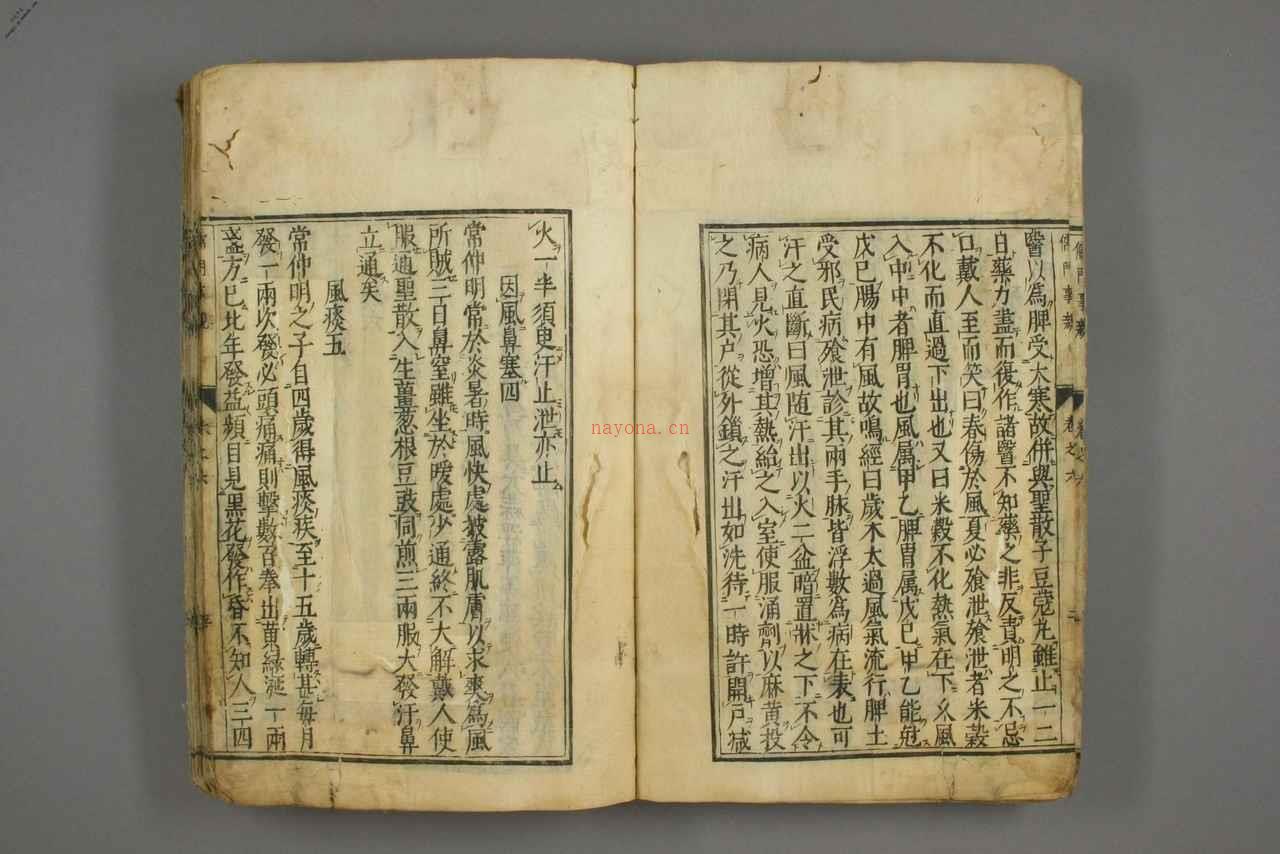 儒門事親 卷之六 二
醫以爲脾受大寒故併與聖散子豆蔻丸雖止一二
日藥力盡而復作諸醫不知藥之非反責明之不忌
口戴人至而笑曰春傷於風夏必飱泄飱泄者米穀
不化而直過下出也又曰米穀不化熱氣在下久風
入中中者脾胃也風属甲乙脾胃属戊巳甲乙能尅
戊巳腸中有風故鳴經曰歲木太過風氣流行脾土
受邪民病飱泄診其兩手脉皆浮數爲病在表也可
汗之直斷曰風随汗出以火二盆暗置牀之下不令
病人見火恐增其熱紿之入室使服涌劑以麻黄投
之乃閉其户從外鎖之汗出如洗待一時許開戸减
火一半須臾汗止泄亦止
因風鼻塞四
常仲明常於炎暑時風快處披露肌膚以求爽爲風
所賊三日鼻窒雖坐於暖處少通終不大解戴人使
服通聖散入生薑葱根豆豉同煎三兩服大發汗鼻
立通矣
風痰五
常仲明之子自四歲得風痰疾至十五歲轉甚每月
發一兩次發必頭痛痛則擊數百拳出黄緑涎一兩
盞方巳比年發益頻目見黑花發作昏不知人三四
nayona.cn